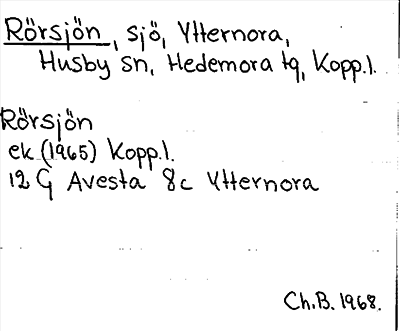 Rörsjön, sjö, Ytternora,
Husby sn, Hedemora tg, Kopp.l.
Rörsjön
ek (1965) Kopp.l.
12 G Avesta 8c Ytternora
Ch.B. 1968.